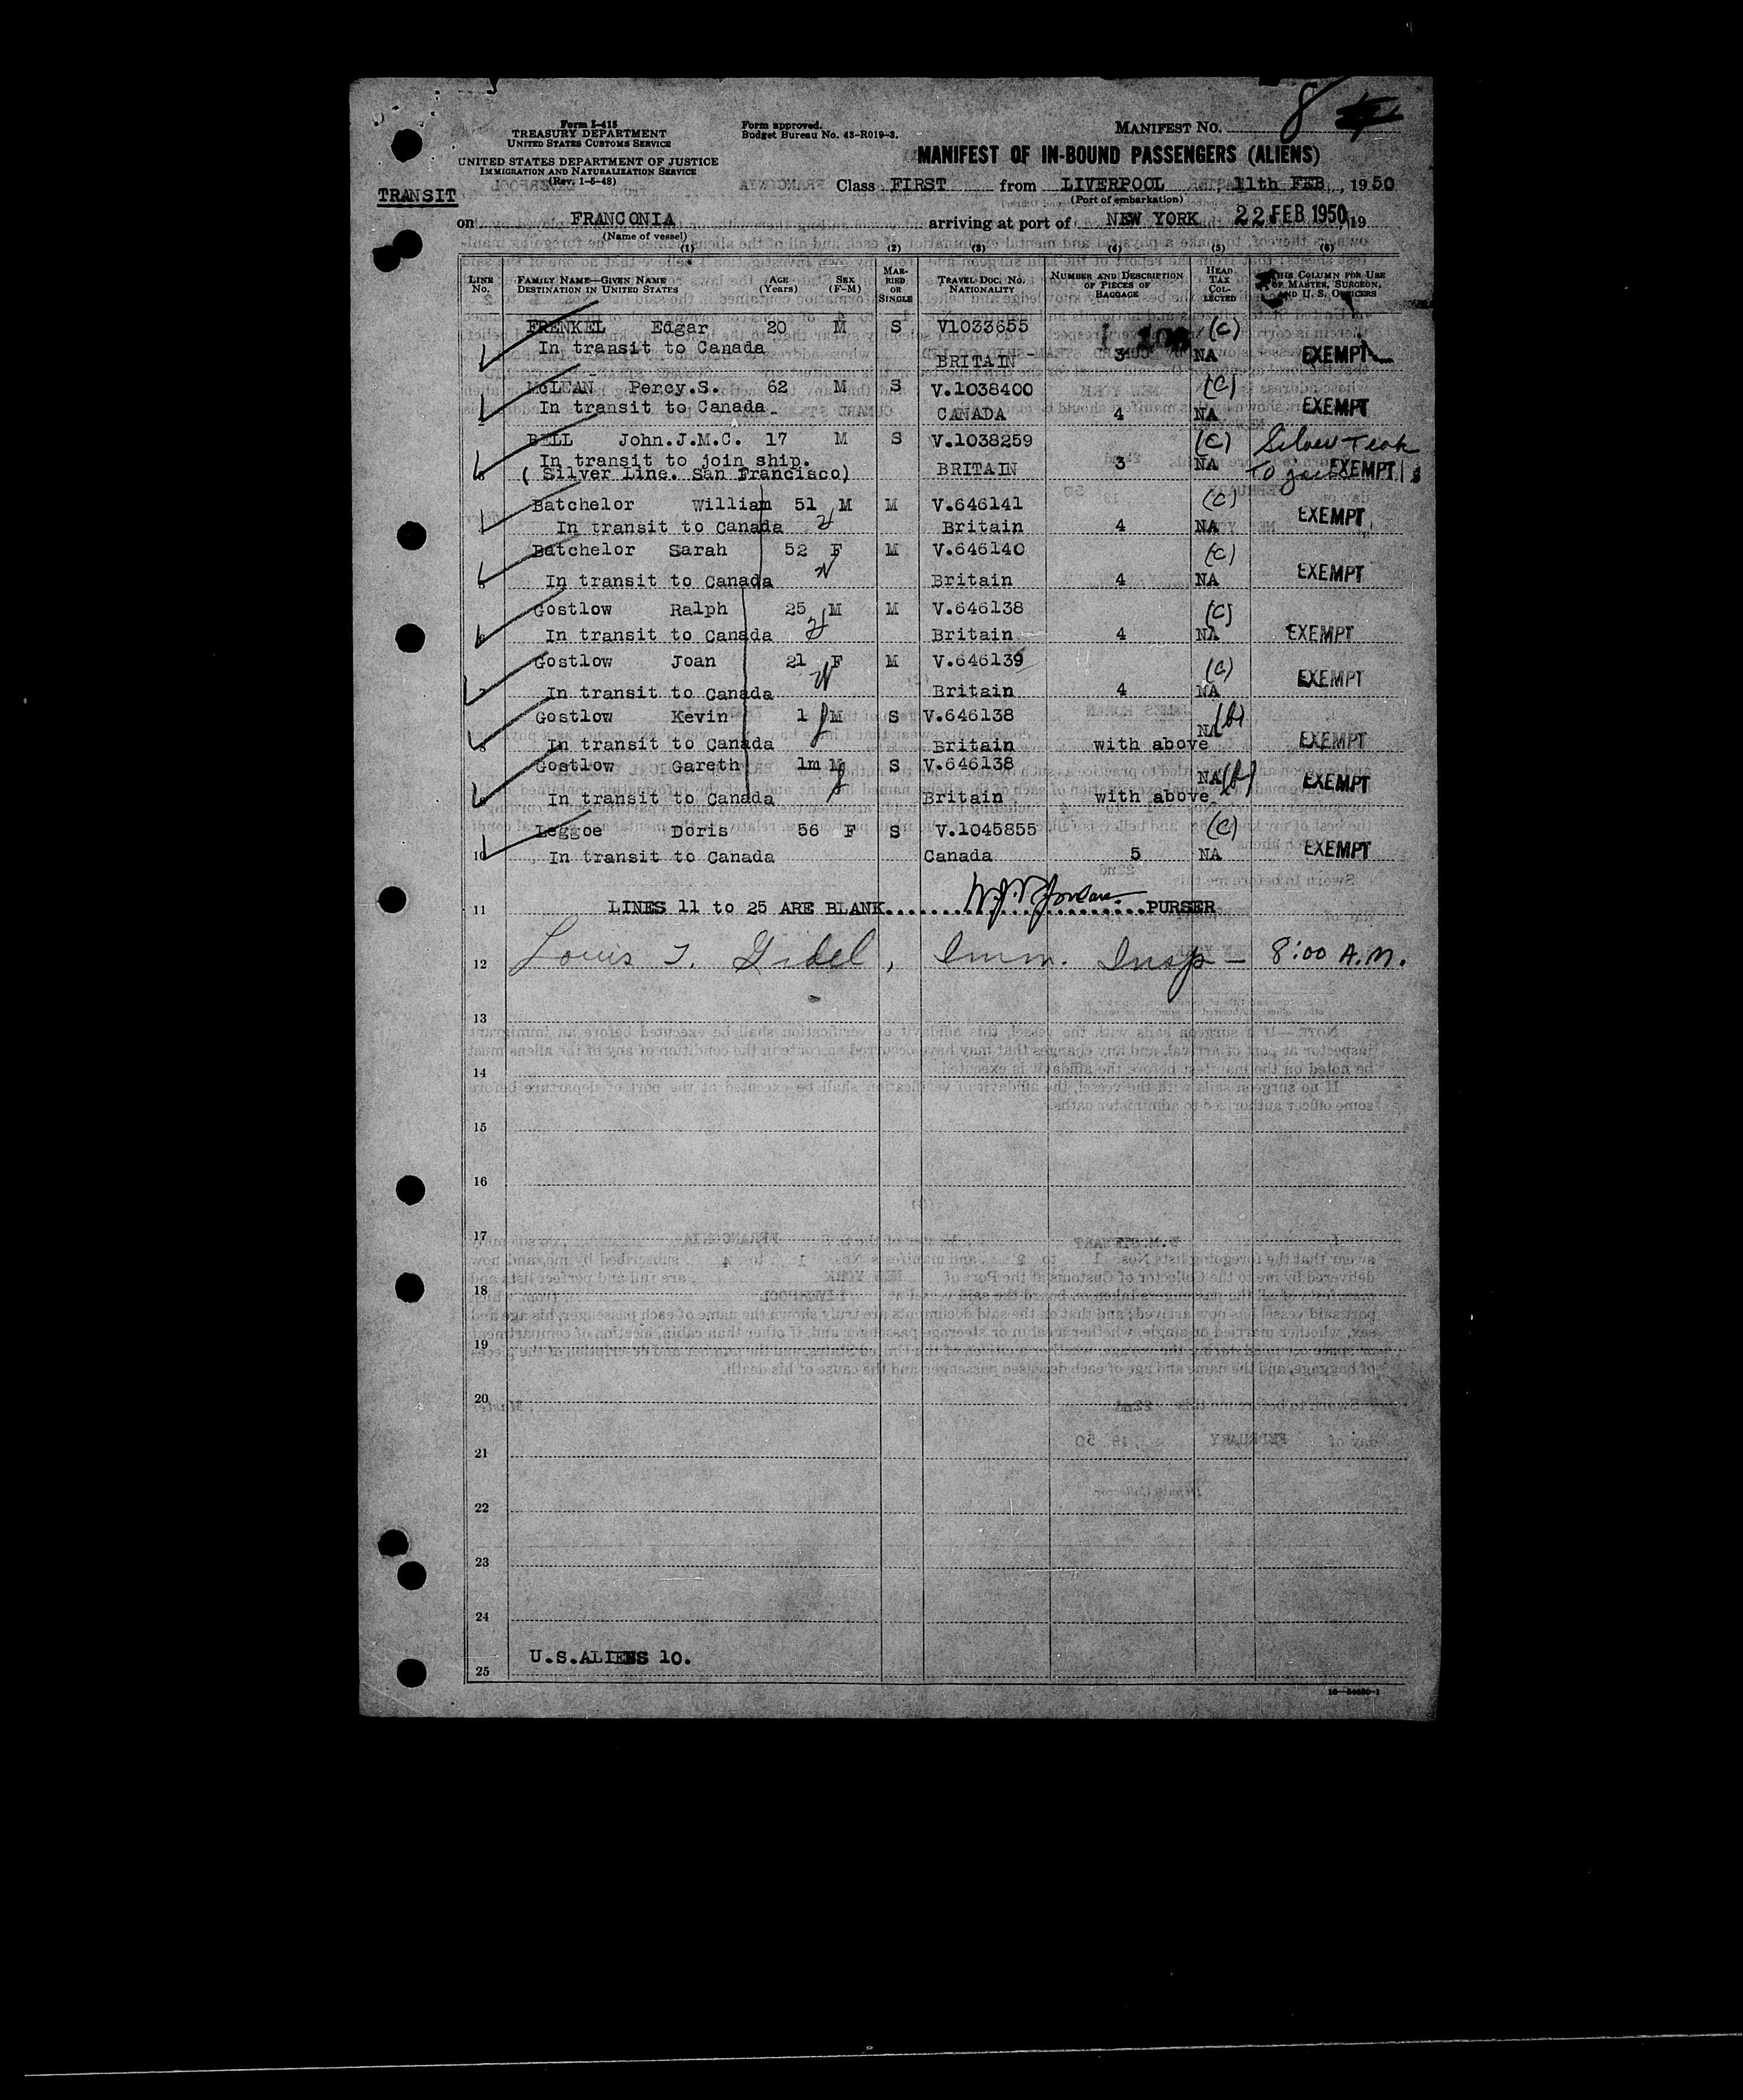 8
Form I-415
TREASURY DEPARTMENT
UNITED STATES CUSTOMS SERVICE
UNITED STATES DEPARTMENT OF JUSTICE
IMMIGRATION AND NATURALIZATION SERVICE
(Rev. 1-5-48)
Form approved.
Budget Bureau No. 43-R019-3.
MANIFEST NO.
MANIFEST OF IN-BOUND PASSENGERS (ALIENS)
TRANSIT
Class FIRST from LIVERPOOL, 11th FEB., 1950
(Port of embarkation)
on FRANCONIA arriving at port of NEW YORK 22 FEB 1950, 19
(Name of vessel)
(1) (2) (3) (4) (5) (6)
LINE No. FAMILY NAME—GIVEN NAME DESTINATION IN UNITED STATES AGE (Years) SEX (F-M) MARRIED OR SINGLE TRAVEL DOC. NO. NATIONALITY NUMBER AND DESCRIPTION OF PIECES OF BAGGAGE HEAD TAX COLLECTED THIS COLUMN FOR USE OF MASTER, SURGEON, AND U. S. OFFICERS
FRENKEL Edgar 20 M S V1033655 (C)
In transit to Canada BRITAIN 3 NA EXEMPT
McLEAN Percy.S. 62 M S V.1038400 (C)
In transit to Canada. CANADA 4 NA EXEMPT
BELL John.J.M.C. 17 M S V.1038259 (C) Silver Teak
In transit to join ship.
( Silver Line. San Francisco) BRITAIN 3 NA To join EXEMPT
Batchelor William 51 M M V.646141 (C)
In transit to Canada Britain 4 NA EXEMPT
Batchelor Sarah 52 F M V.646140 (C)
5 In transit to Canada Britain 4 NA EXEMPT
Gostlow Ralph 25 M M V.646138 (C)
6 In transit to Canada Britain 4 NA EXEMPT
Gostlow Joan 21 F M V.646139 (C)
7 In transit to Canada Britain 4 NA EXEMPT
Gostlow Kevin 1 M S V.646138 (b)
8 In transit to Canada Britain with above NA EXEMPT
Gostlow Gareth 1m M S V.646138
9 In transit to Canada Britain with above NA (b) EXEMPT
Leggoe Doris 56 F S V.1045855 (C)
10 In transit to Canada Canada 5 NA EXEMPT
11 LINES 11 to 25 ARE BLANK PURSER
12 Louis T. Gidel, Imm. Insp — 8:00 A.M.
13
14
15
16
17
18
19
20
21
22
23
24
U.S.ALIENS 10.
25